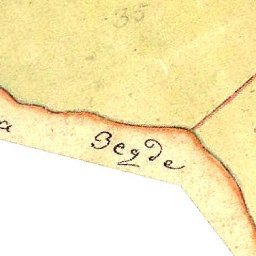 35
Begde